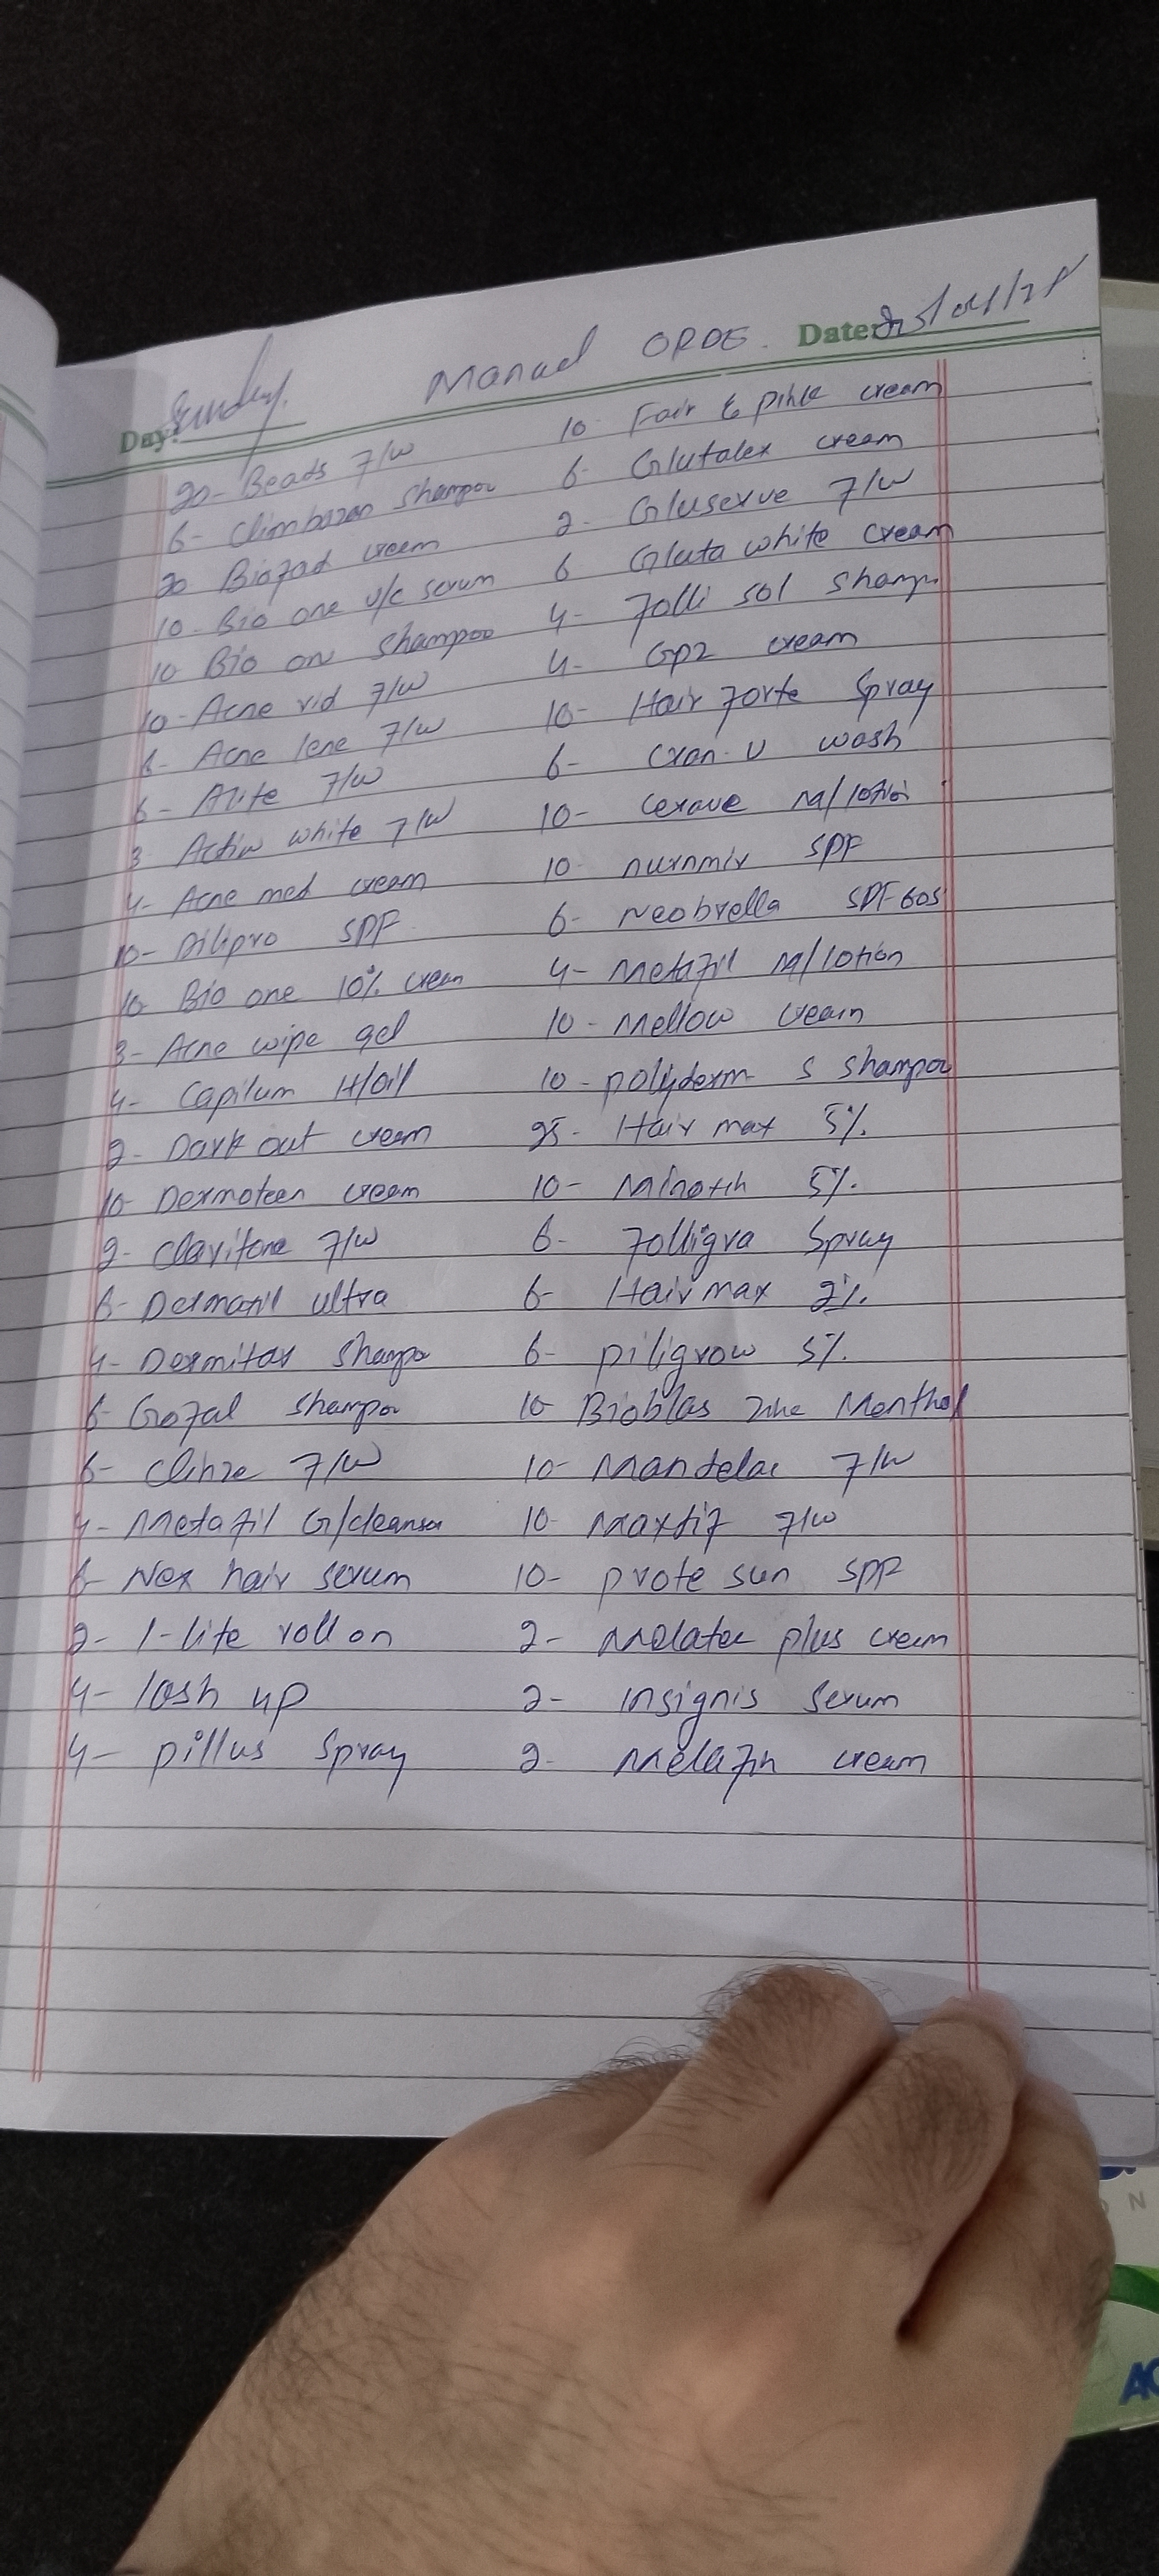 Day: Sunday
Manual ORDE.
Date:
20- Beads F/W
6- Climbazon Shampoo
20 Biofad cream
10- Bio one v/c serum
10 Bio on Shampoo
10- Acne rid F/W
6- Acne lene F/W
6- Alite F/W
3 Activ white F/W
4- Acne med cream
10- Dilipro SPF
10 Bio one 10% cream
3- Acne wipe gel
4- Capilum H/oil
2- Dark out cream
10 Dermoteen cream
2- Claritone F/W
6- Dermafil ultra
4- Dermitar Shampo
6- Gofal Shampoo
6- Clinze F/W
4- Metafil G/cleanser
6- Nex hair serum
2- L-lite roll on
4- lash up
4- pillus Spray
10 Fair & pink cream
6- Glutalex cream
2- Gluserve F/W
6 Gluta white cream
4- Folli sol Shampo
4- GP2 cream
10- Hair forte Spray
6- Cran-U wash
10- Cerave M/lotion
10- nurnmix SPF
6- Neobrella SPF 60s
4- Metafil M/lotion
10- Mellow cream
10- polyderm S Shampoo
25- Hair max 5%
10- Minoxin 5%
6- Folligra Spray
6- Hair max 2%
6- piligrow 5%
10 Bioblas Zinc Menthol
10- Mandelac F/W
10- Maxtif F/W
10- prote sun SPF
2- Melatec plus cream
2- insignis Serum
2- Melafin cream
AC